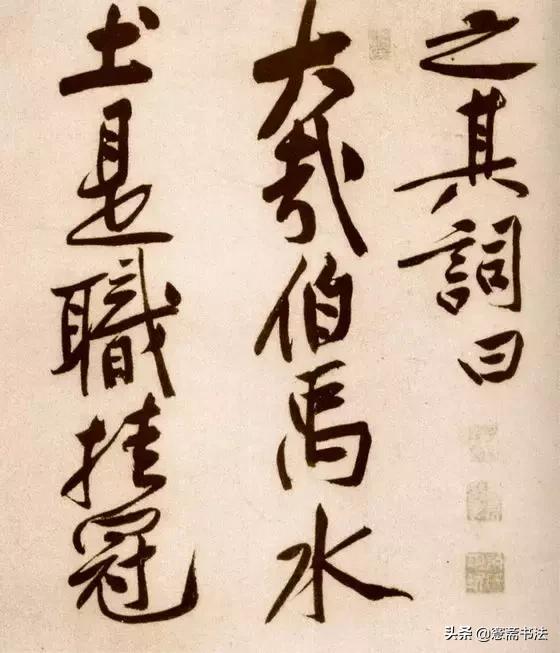 之其詞曰
大哉伯禹水
土是職挂冠
头条@窓斋书法